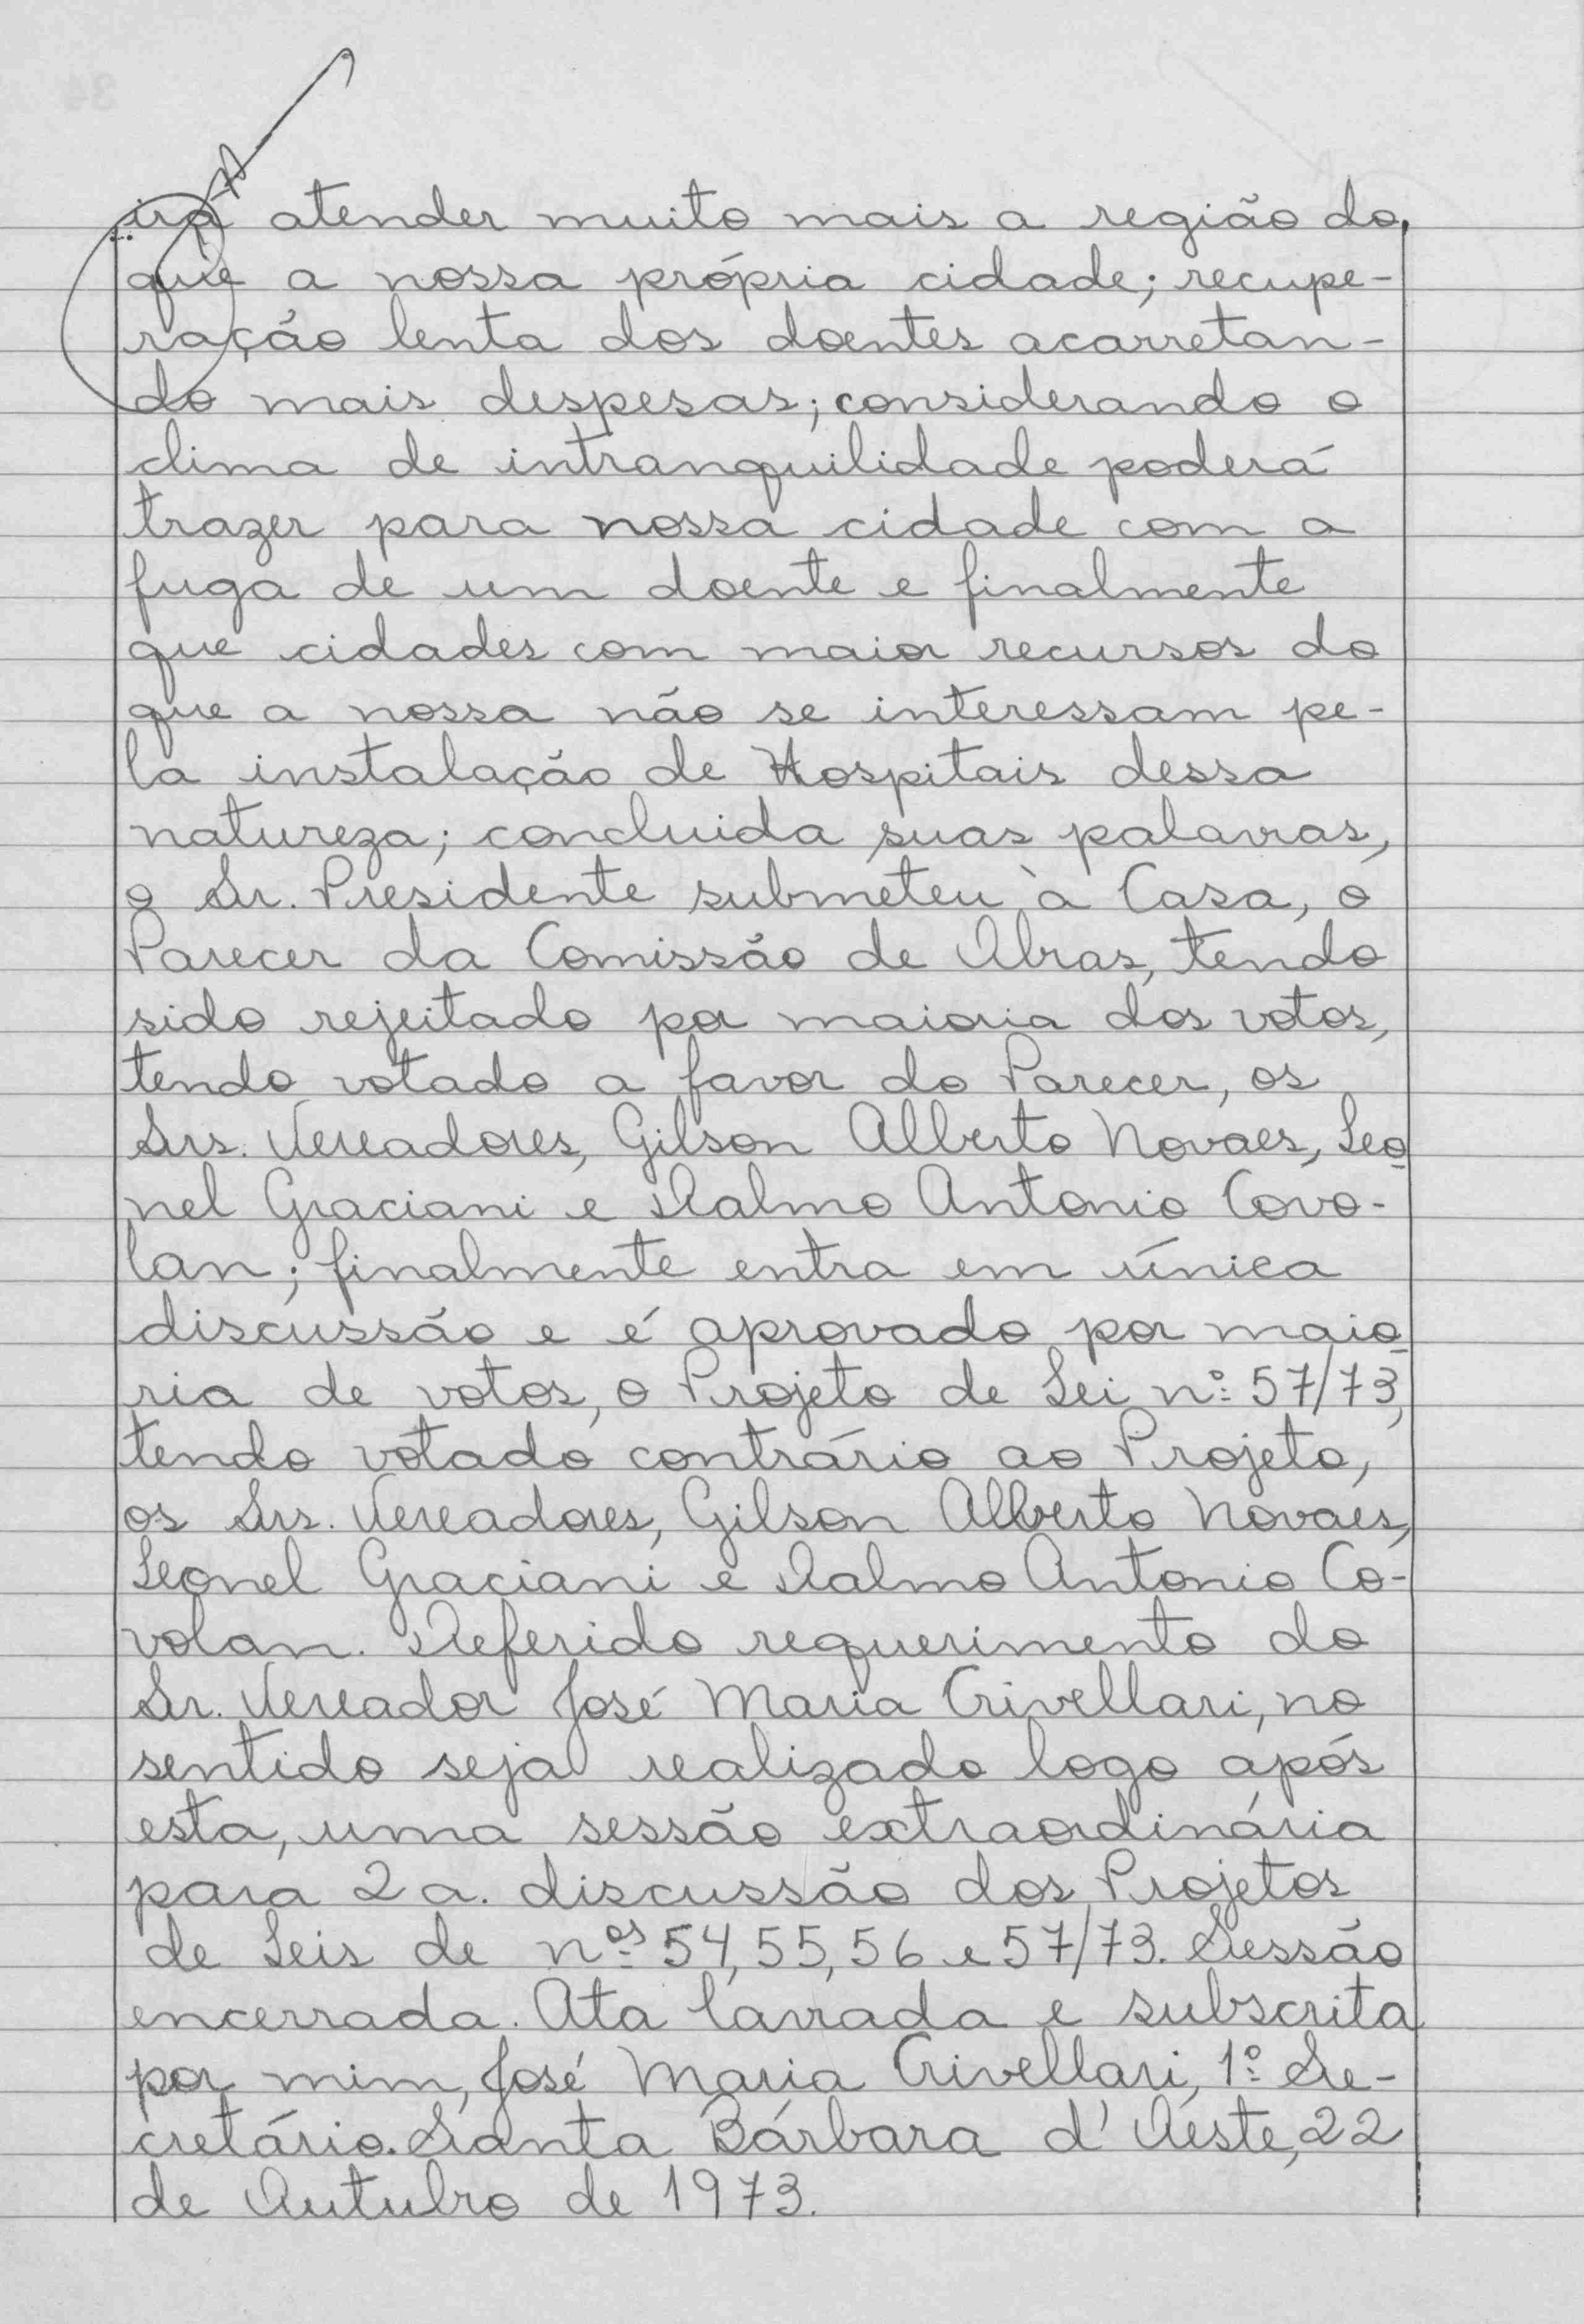 irá atender muito mais a região do
que a nossa própria cidade; recupe-
ração lenta dos doentes acarretan-
do mais despesas; considerando o
clima de intranquilidade poderá
trazer para nossa cidade com a
fuga de um doente e finalmente
que cidades com maior recursos do
que a nossa não se interessam pe-
la instalação de Hospitais dessa
natureza; concluida suas palavras,
o Sr. Presidente submeteu à Casa, o
Parecer da Comissão de Obras, tendo
sido rejeitado por maioria dos votos,
tendo votado a favor do Parecer, os
Srs. Vereadores, Gilson Alberto Novaes, Leo
nel Graciani e Dalmo Antonio Covo-
lan; finalmente entra em única
discussão e é aprovado por maio
ria de votos, o Projeto de Lei nº 57/73,
tendo votado contrário ao Projeto,
os Srs. Vereadores, Gilson Alberto Novaes,
Leonel Graciani e Dalmo Antonio Co-
volan. Deferido requerimento do
Sr. Vereador José Maria Crivellari, no
sentido seja realizado logo após
esta, uma sessão extraordinária
para 2a. discussão dos Projetos
de Leis de nºs 54, 55, 56 e 57/73. Sessão
encerrada. Ata lavrada e subscrita
por mim, José Maria Crivellari, 1º Se-
cretário. Santa Bárbara d'Oeste, 22
de Outubro de 1973.